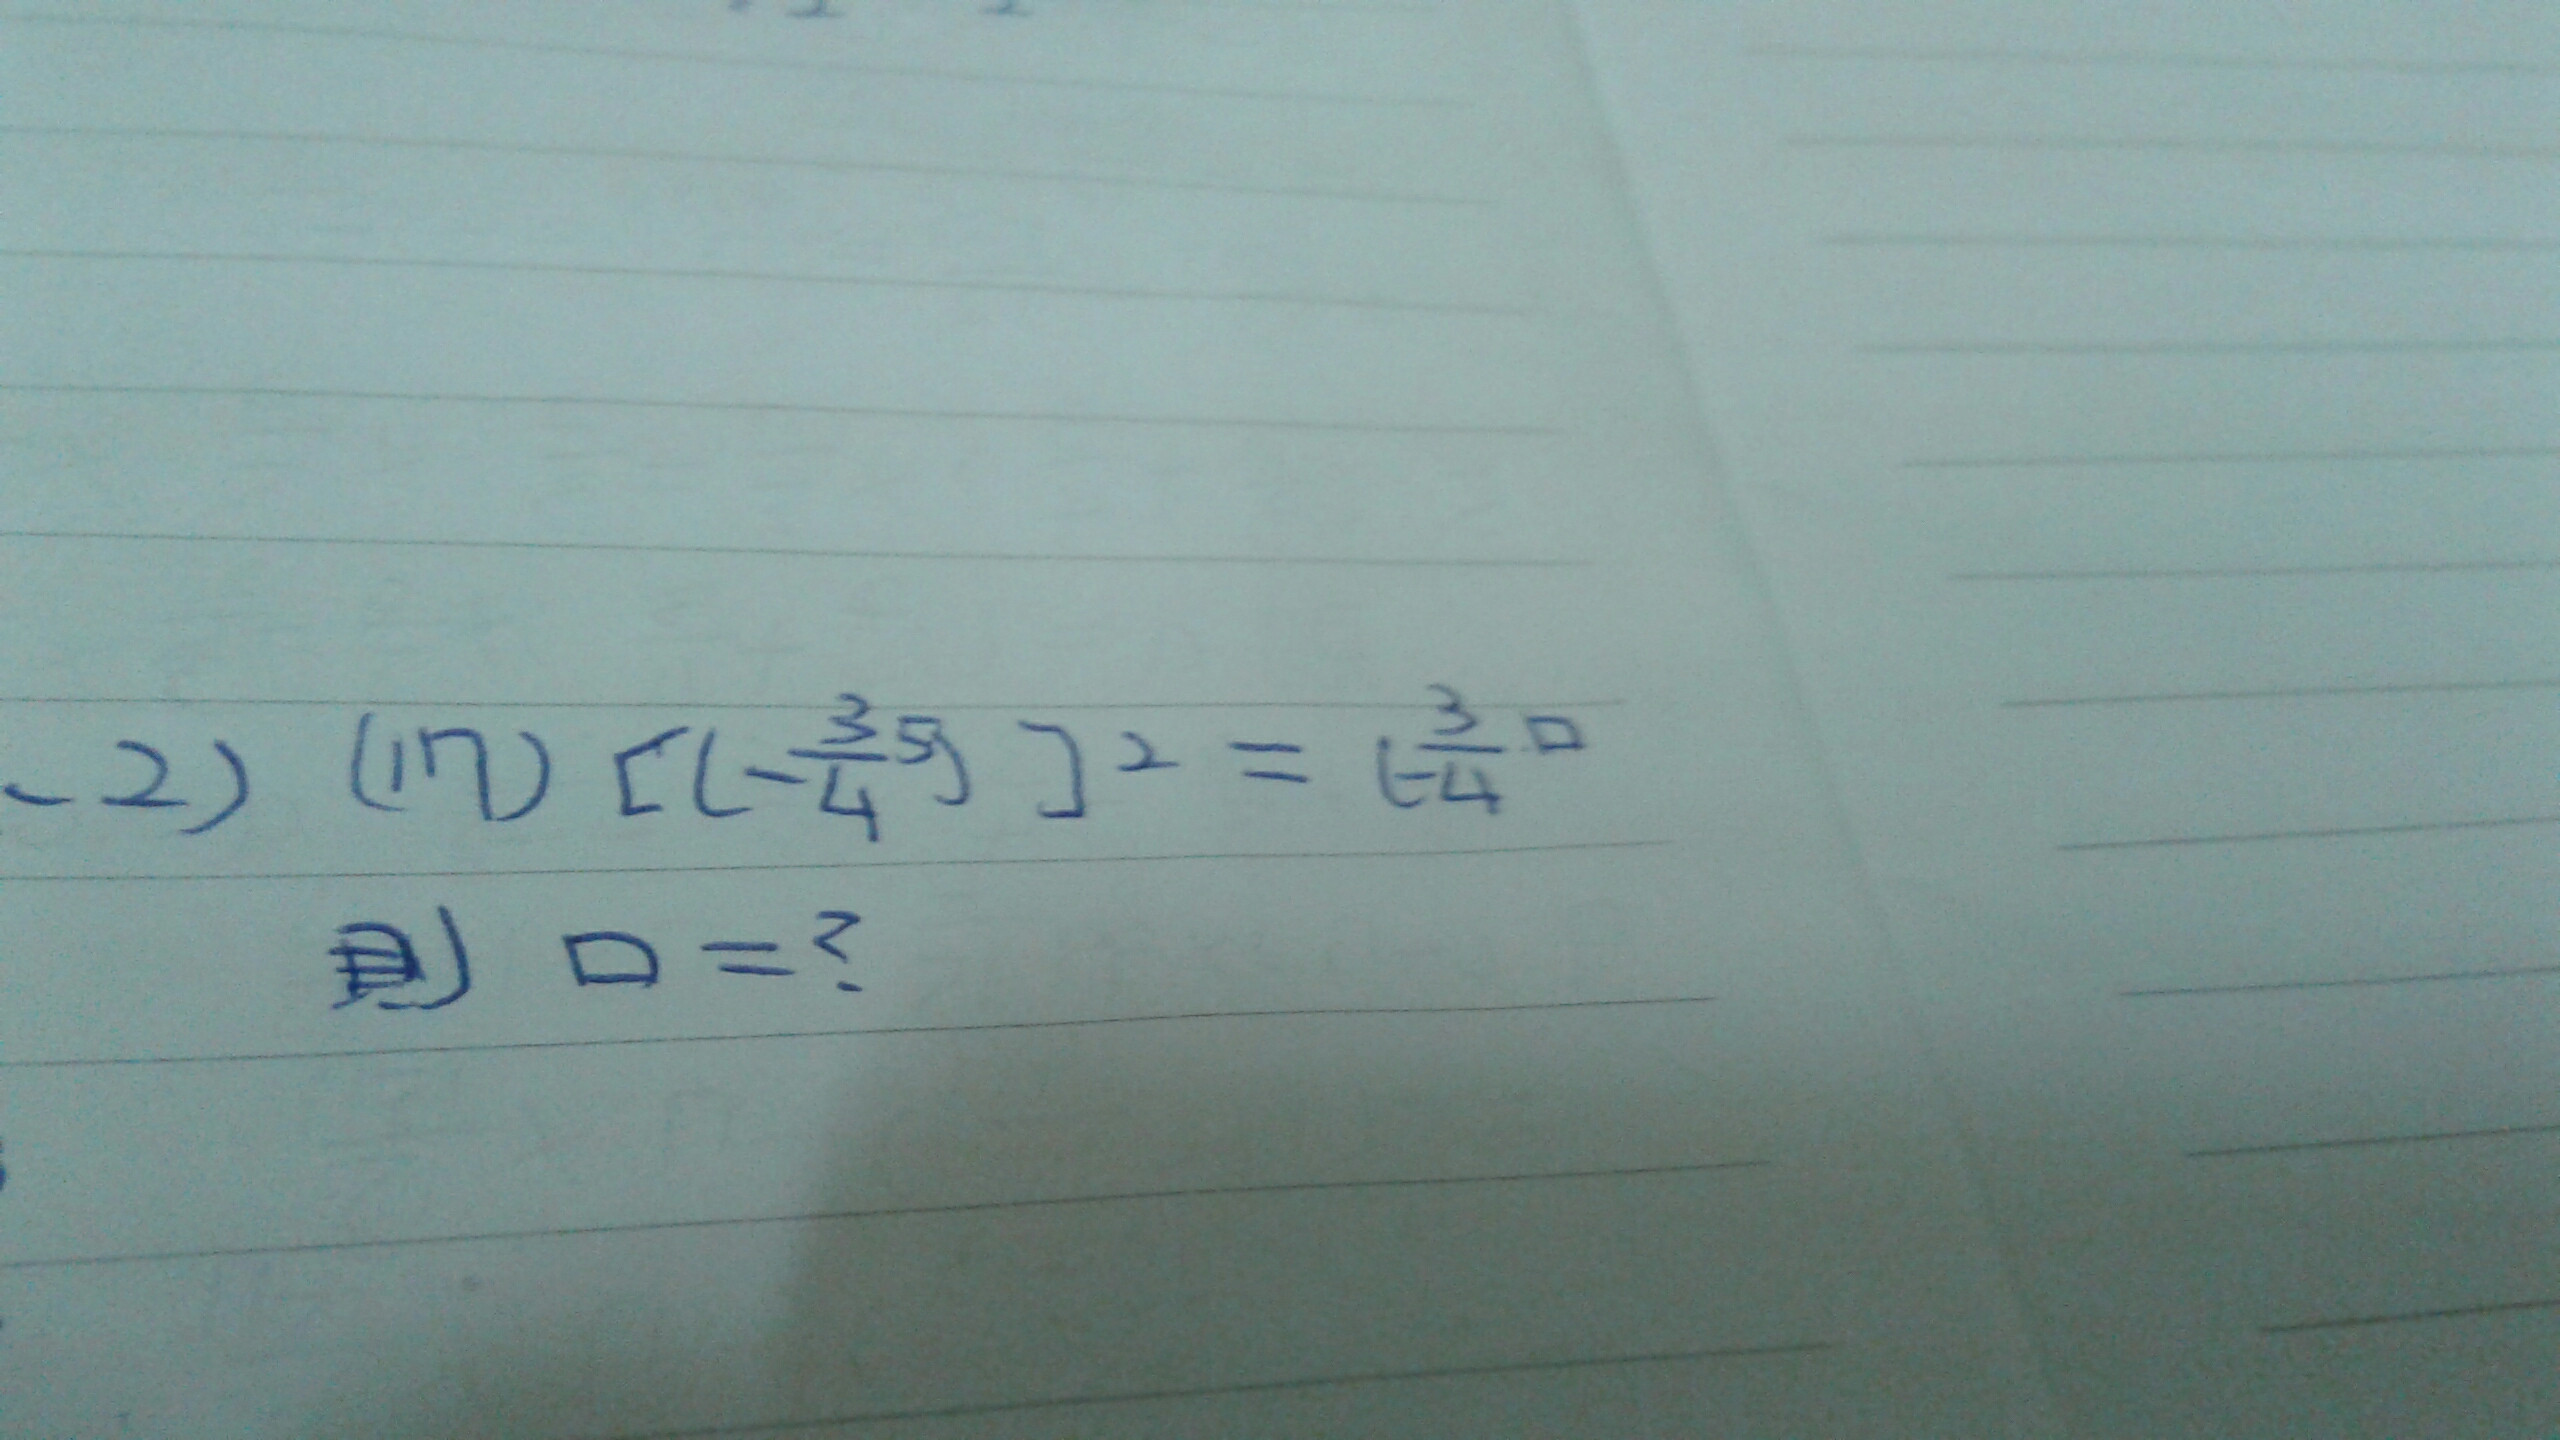 -2) (17) [(-3/4 5)]2 = (-3/4 □
則 □=?